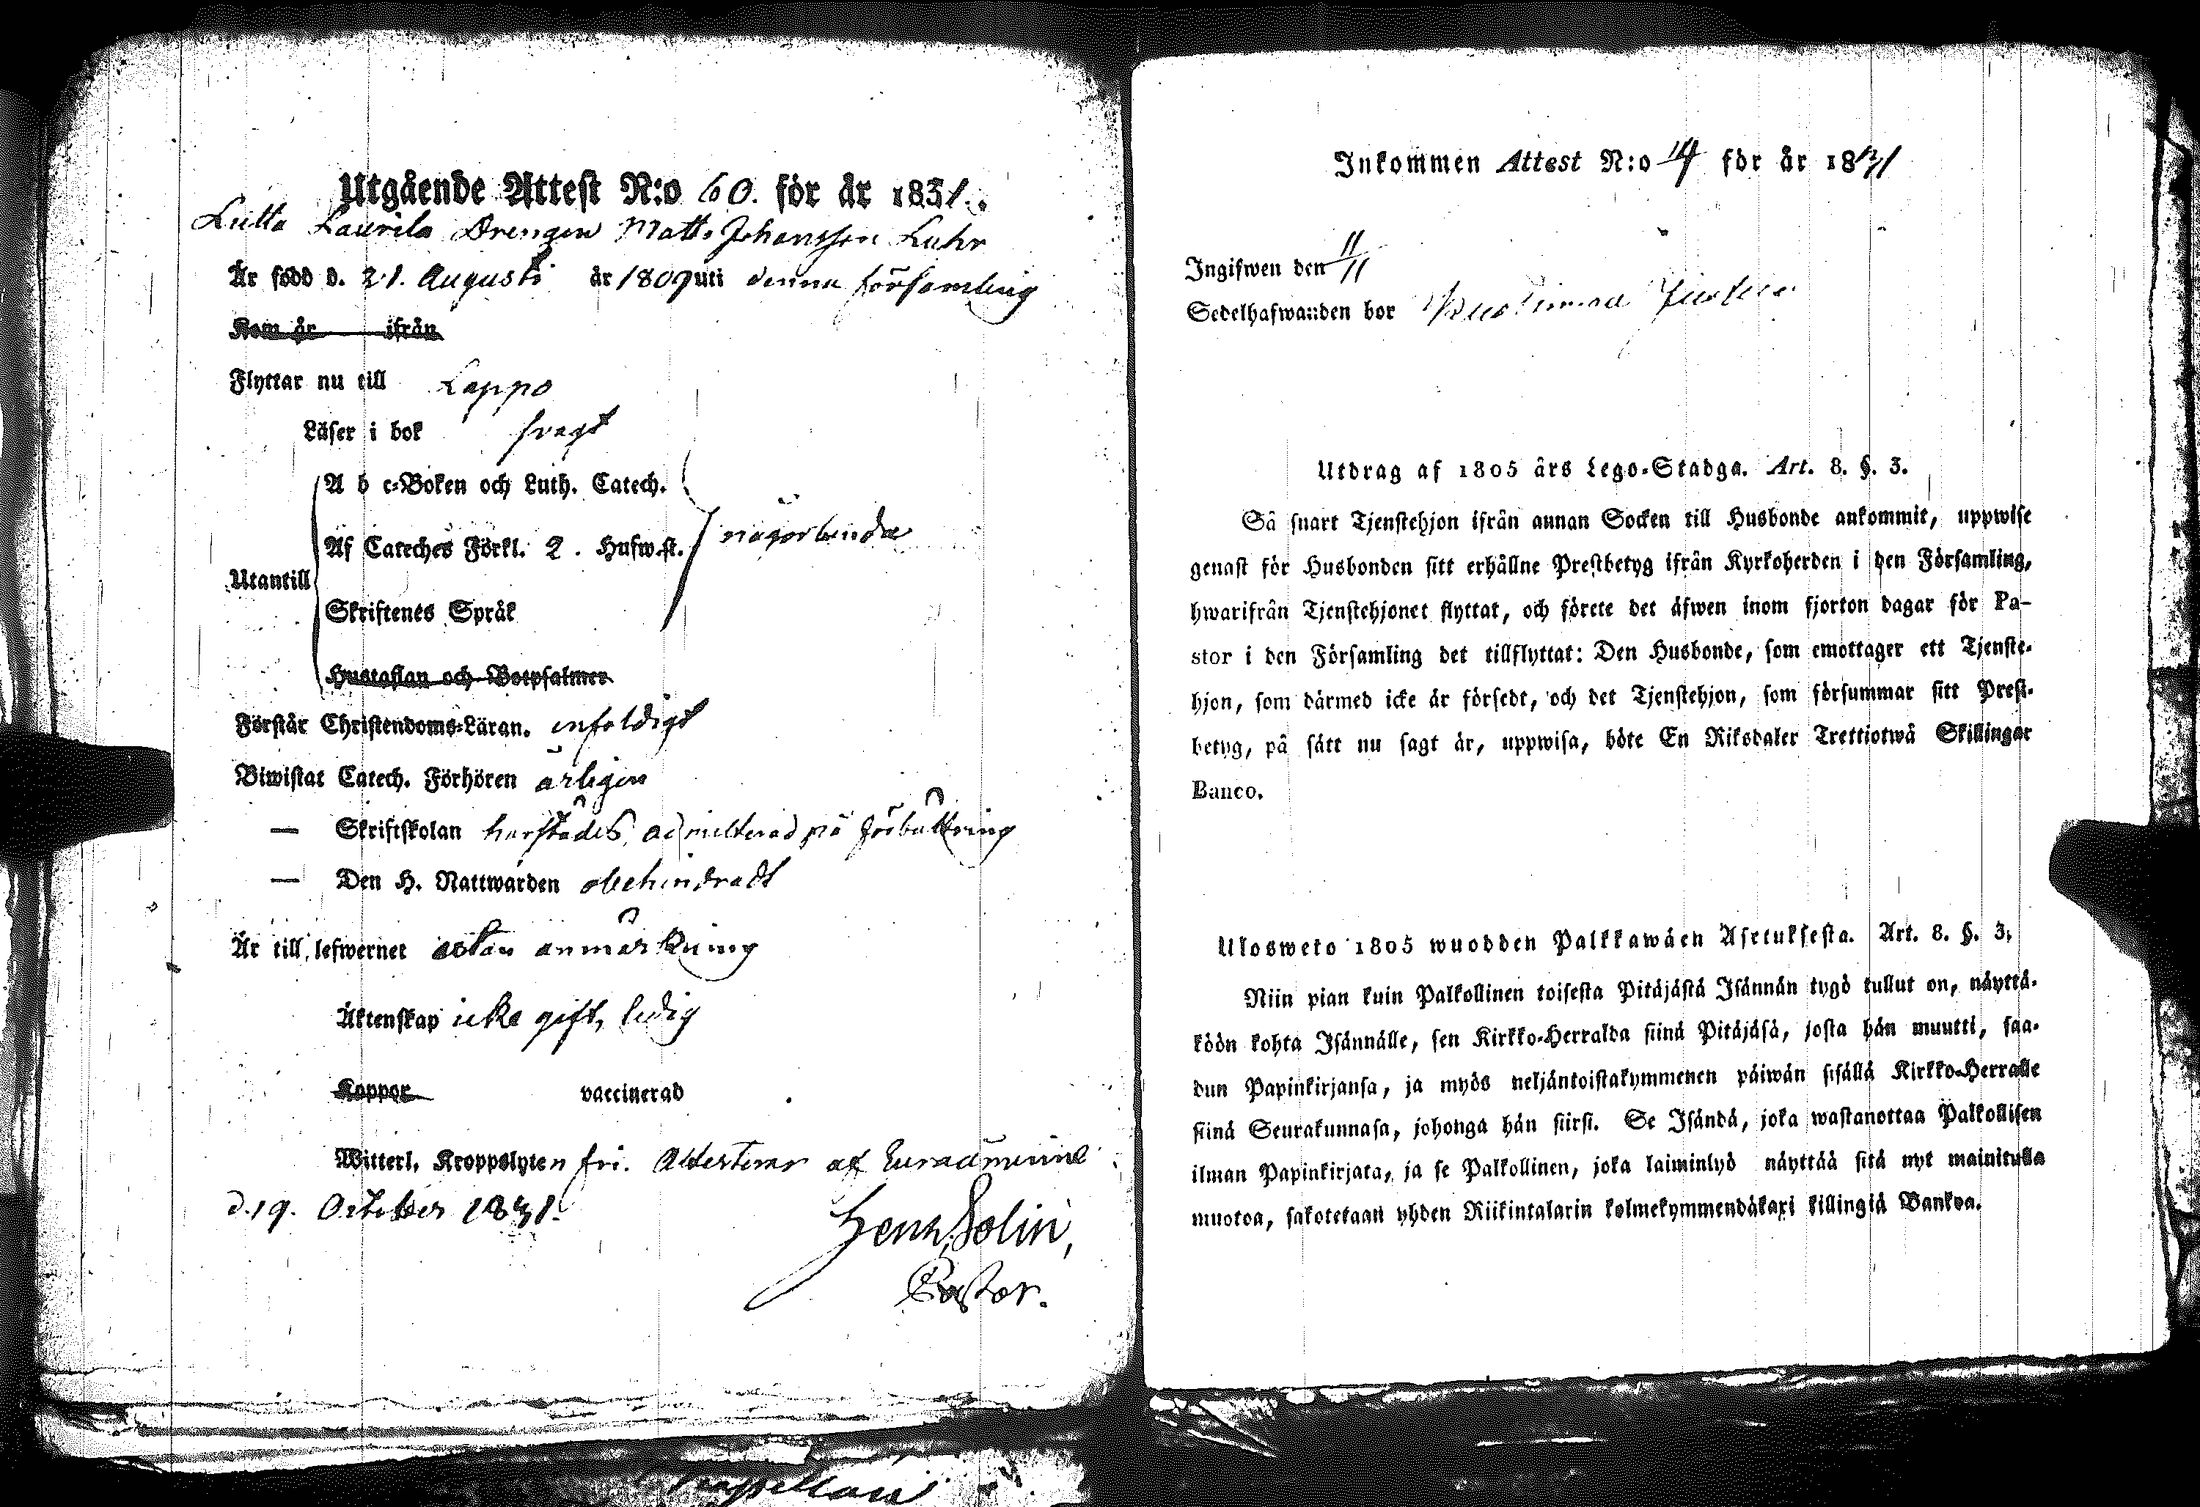 Utgående Attest N:o 60. för år 1831.
Lutto Laurila Drengen Matts Johansson Luhr
Är född d. 21. Augusti år 1809 uti denna församling
Kom år ifrån
Flyttar nu till Lappo
Läser i bok svagt
A b c-Boken och Luth. Catech.
Af Cateches Förkl. 2. Hufw.st. någorlunda
Utantill
Skriftenes Språk
Hustaflan och Botpsalmer
Förstår Christendoms-Läran. enfoldigt
Biwistat Catech. Förhören årligen
— Skriftskolan härstädes, admitterad på förbättring
— Den H. Nattwarden obehindradt
Är till lefwernet utan anmärkning
Äktenskap icke gift, ledig
Koppor vaccinerad
Witterl. Kroppslyten fri. Attesterar af Euraåminne
d. 19. October 1831.
Henr. Solin,
Pastor.
Inkommen Attest N:o 14 för år 1831
Ingifwen den 11/11
Sedelhafwanden bor
Utdrag af 1805 års Lego-Stadga. Art. 8. §. 3.
Så snart Tjenstehjon ifrån annan Socken till Husbonde ankommit, uppwise
genast för Husbonden sitt erhållne Prestbetyg ifrån Kyrkoherden i den Församling,
hwarifrån Tjenstehjonet flyttat, och förete det äfwen inom fjorton dagar för Pa-
stor i den Församling det tillflyttat: Den Husbonde, som emottager ett Tjenste-
hjon, som därmed icke är försedt, och det Tjenstehjon, som försummar sitt Prest-
betyg, på sätt nu sagt är, uppwisa, böte En Riksdaler Trettiotwå Skillingar
Banco.
Ulosweto 1805 wuodden Palkkawäen Asetuksesta. Art. 8. §. 3.
Niin pian kuin Palkollinen toisesta Pitäjästä Isännän tygö tullut on, näyttä-
köön kohta Isännälle, sen Kirkko-Herralda siinä Pitäjäsä, josta hän muutti, saa-
dun Papinkirjansa, ja myös neljäntoistakymmenen päiwän sisällä Kirkko-Herralle
siinä Seurakunnasa, johonga hän siirsi. Se Isändä, joka wastanottaa Palkollisen
ilman Papinkirjata, ja se Palkollinen, joka laiminlyö näyttää sitä nyt mainitulla
muotoa, sakotetaan yhden Riikintalarin kolmekymmendäkaxi killingiä Bankoa.